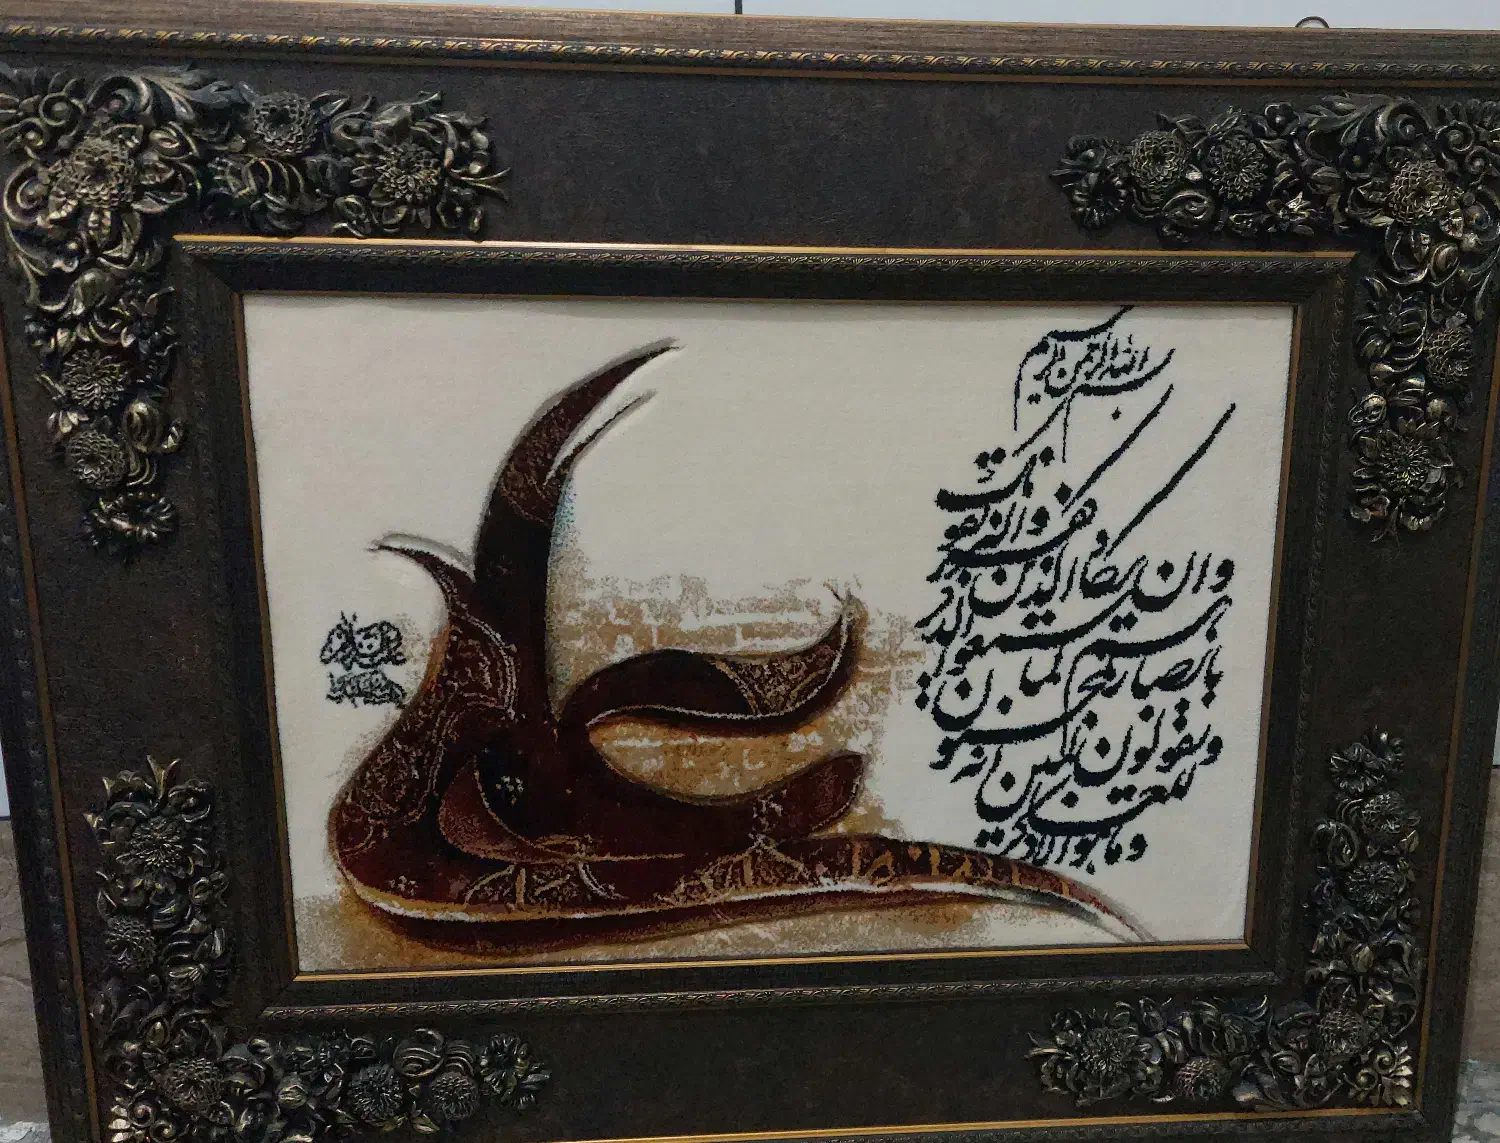 بسم الله الرحمن الرحیم
وان یکاد الذین کفروا لیزلقونک
بابصارهم لما سمعوا الذکر
ویقولون انه لمجنون
وما هو الا ذکر للعالمین